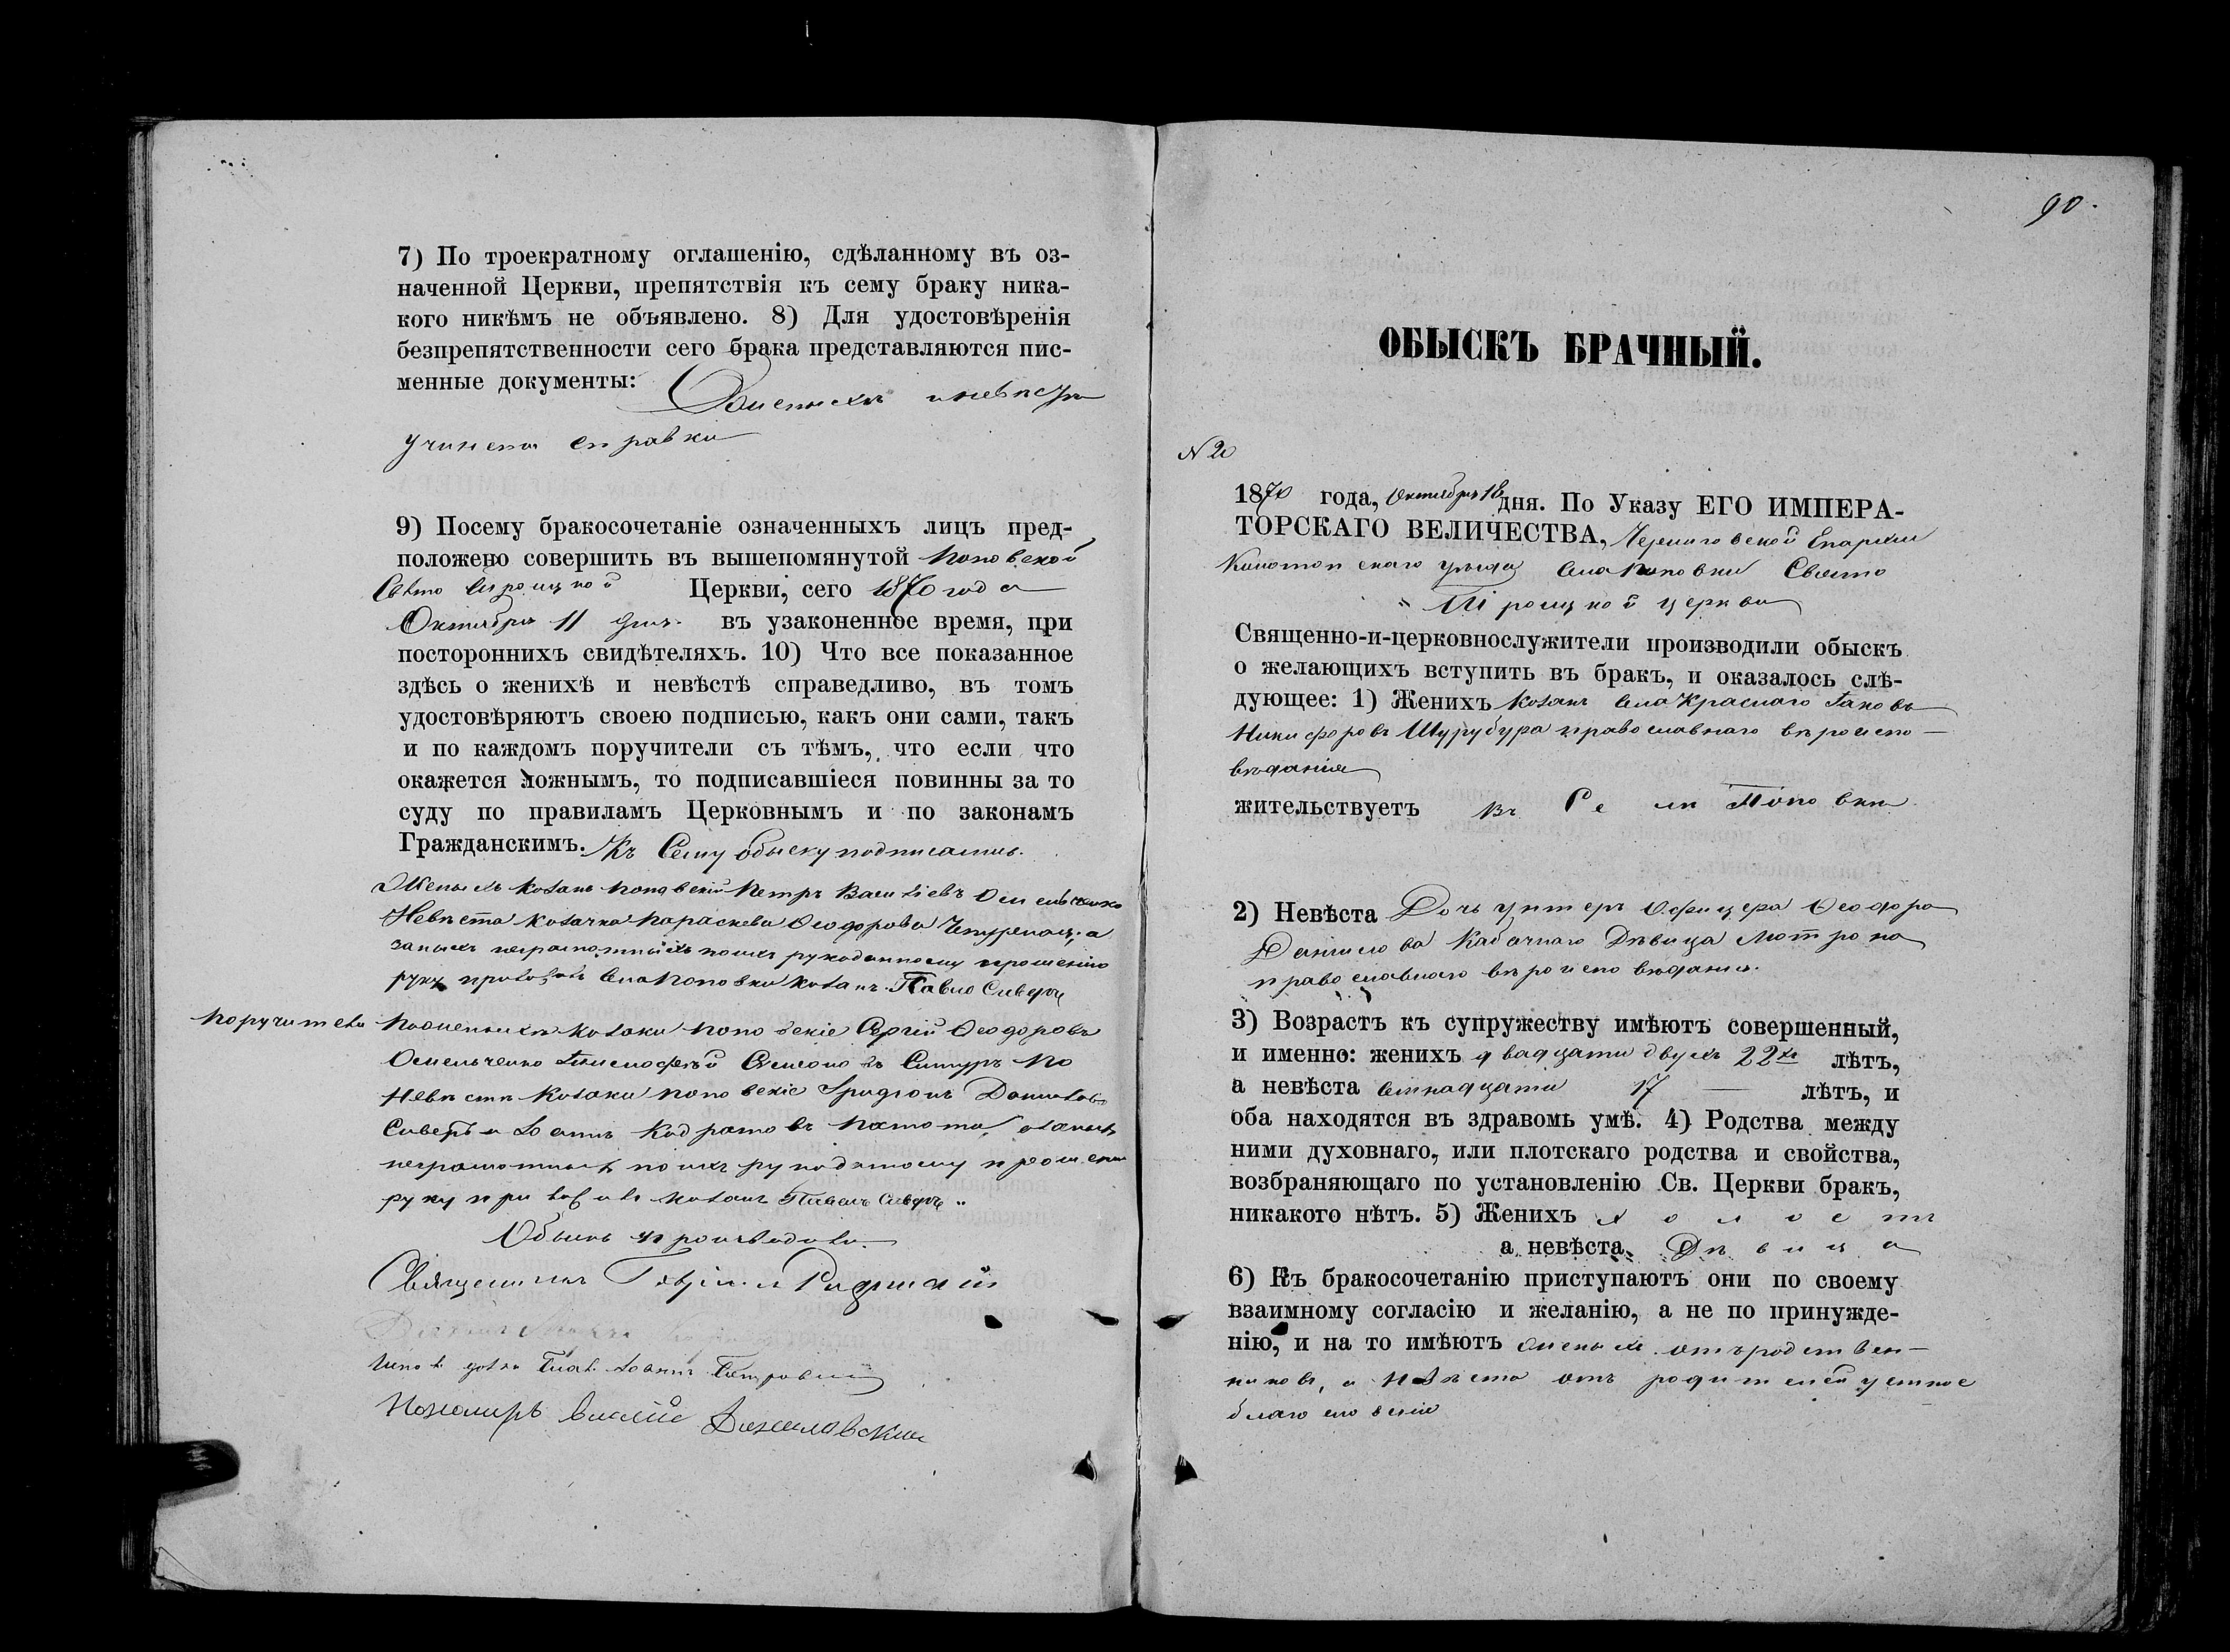 7) По троекратному оглашенію, сдѣланному въ оз-
наченной Церкви, препятствія къ сему браку ника-
кого никѣмъ не объявлено. 8) Для удостовѣренія
безпрепятственности сего брака представляются пис-
менные документы:
учинена справка
9) Посему бракосочетаніе означенныхъ лицъ пред-
положено совершить въ вышепомянутой Поповской
Свято Троицкой Церкви, сего 1870 года
Октября 11 дня. въ узаконенное время, при
постороннихъ свидѣтеляхъ. 10) Что все показанное
здѣсь о женихѣ и невѣстѣ справедливо, въ томъ
удостовѣряютъ своею подписью, какъ они сами, такъ
и по каждомъ поручители съ тѣмъ, что если что
окажется ложнымъ, то подписавшіеся повинны за то
суду по правиламъ Церковнымъ и по законамъ
Гражданскимъ. Къ Сему обыску подписались.
Женихъ козакъ Поповскій Петръ Василіевъ
Невѣста козачка Параскева Феодорова а
неграмотныхъ по ихъ рукоданному прошенію
руку села Поповки козакъ Павло Сиверъ
Поручители По женихѣ козаки Поповскіе Сергій Феодоровъ
Омельченко По
невѣстѣ козаки Поповскіе
Сиверъ и
неграмотныхъ по ихъ рукоданному прошенію
руку козакъ Павелъ Сиверъ
Обыскъ производили
Священникъ
Петровскій
Пономарь Василій
90.
N 20
1870 года, Октября 16 дня. По Указу ЕГО ИМПЕРА-
ТОРСКАГО ВЕЛИЧЕСТВА, Черниговской Епархіи
Конотопскаго уѣзда села Поповки Свято
Троицкой церкви
Священно-и-церковнослужители производили обыскъ
о желающихъ вступить въ бракъ, и оказалось слѣ-
дующее: 1) Женихъ козакъ села Краснаго Іаковъ
Никифоровъ Шурубура православнаго вѣроиспо-
вѣданія
жительствуетъ въ Селѣ Поповкѣ
2) Невѣста Дочь унтеръ Офицера Феодора
Данилова Кабачнаго Дѣвица Мотрона
православнаго вѣроисповѣданія.
3) Возрастъ къ супружеству имѣютъ совершенный,
и именно: женихъ двадцати двухъ 22х лѣтъ,
а невѣста семнадцати 17 лѣтъ, и
оба находятся въ здравомъ умѣ. 4) Родства между
ними духовнаго, или плотскаго родства и свойства,
возбраняющаго по установленію Св. Церкви бракъ,
никакого нѣтъ. 5) Женихъ холостъ
а невѣста Дѣвица
6) Къ бракосочетанію приступаютъ они по своему
взаимному согласію и желанію, а не по принужде-
нію, и на то имѣютъ женихъ отъ родствен-
никовъ, а невѣста отъ родителей устное
благословеніе
ОБЫСКЪ БРАЧНЫЙ.